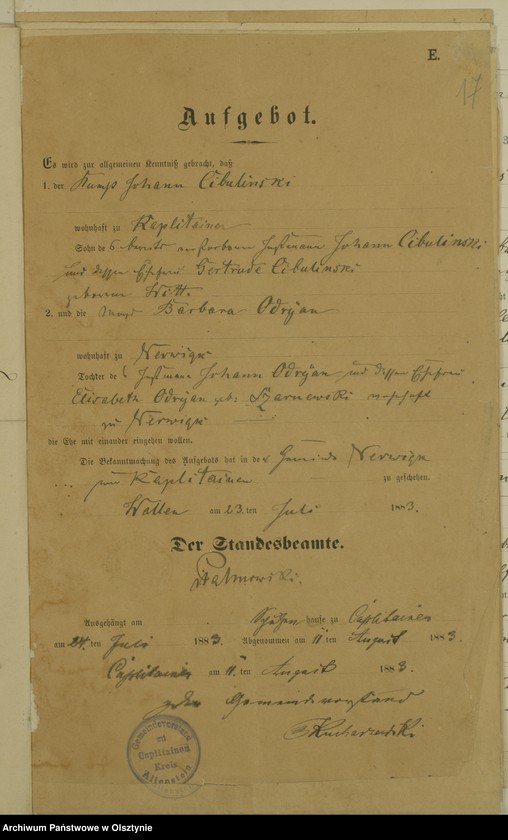 E.
17
Aufgebot.
Es wird zur allgemeinen Kenntniß gebracht, daß
1. der Johann Cibulinski
wohnhaft zu Kaplitainen
Sohn des bereits verstorbenen Instmann Johann Cibulinski
und dessen Ehefrau Gertrude Cibulinski
geborene Witt.
2. und die Barbara Odrÿan
wohnhaft zu Nerwigk
Tochter des Instmann Johann Odrÿan und dessen Ehefrau
Elisabeth Odrÿan geb. Szarnewski wohnhaft
zu Nerwigk
die Ehe mit einander eingehen wollen.
Die Bekanntmachung des Aufgebots hat in der Gemeinde Nerwigk
und Kaplitainen zu geschehen.
Wallen am 23. ten Juli 1883.
Der Standesbeamte.
Ausgehängt am Schulzen hause zu Caplitainen
am 24. ten Juli 1883. Abgenommen am 11 ten August 1883.
Caplitainen am 11. ten August 1883.
Gemeindevorstand
Kucharzewski
Gemeindevorstand
zu
Caplitainen
Kreis
Allenstein
Archiwum Państwowe w Olsztynie